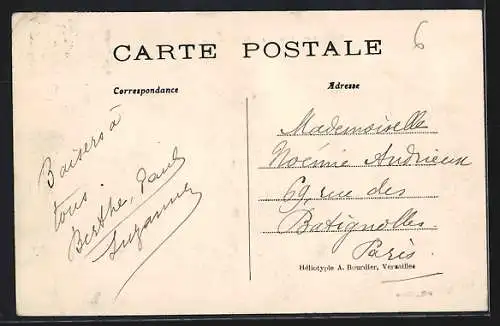 6
CARTE POSTALE
Correspondance
Adresse
Baisers à
tous.
Berthe, Paul
Suzanne
Mademoiselle
Noémie Andrieux
69, rue des
Batignolles.
Paris.
Héliotypie A. Bourdier, Versailles